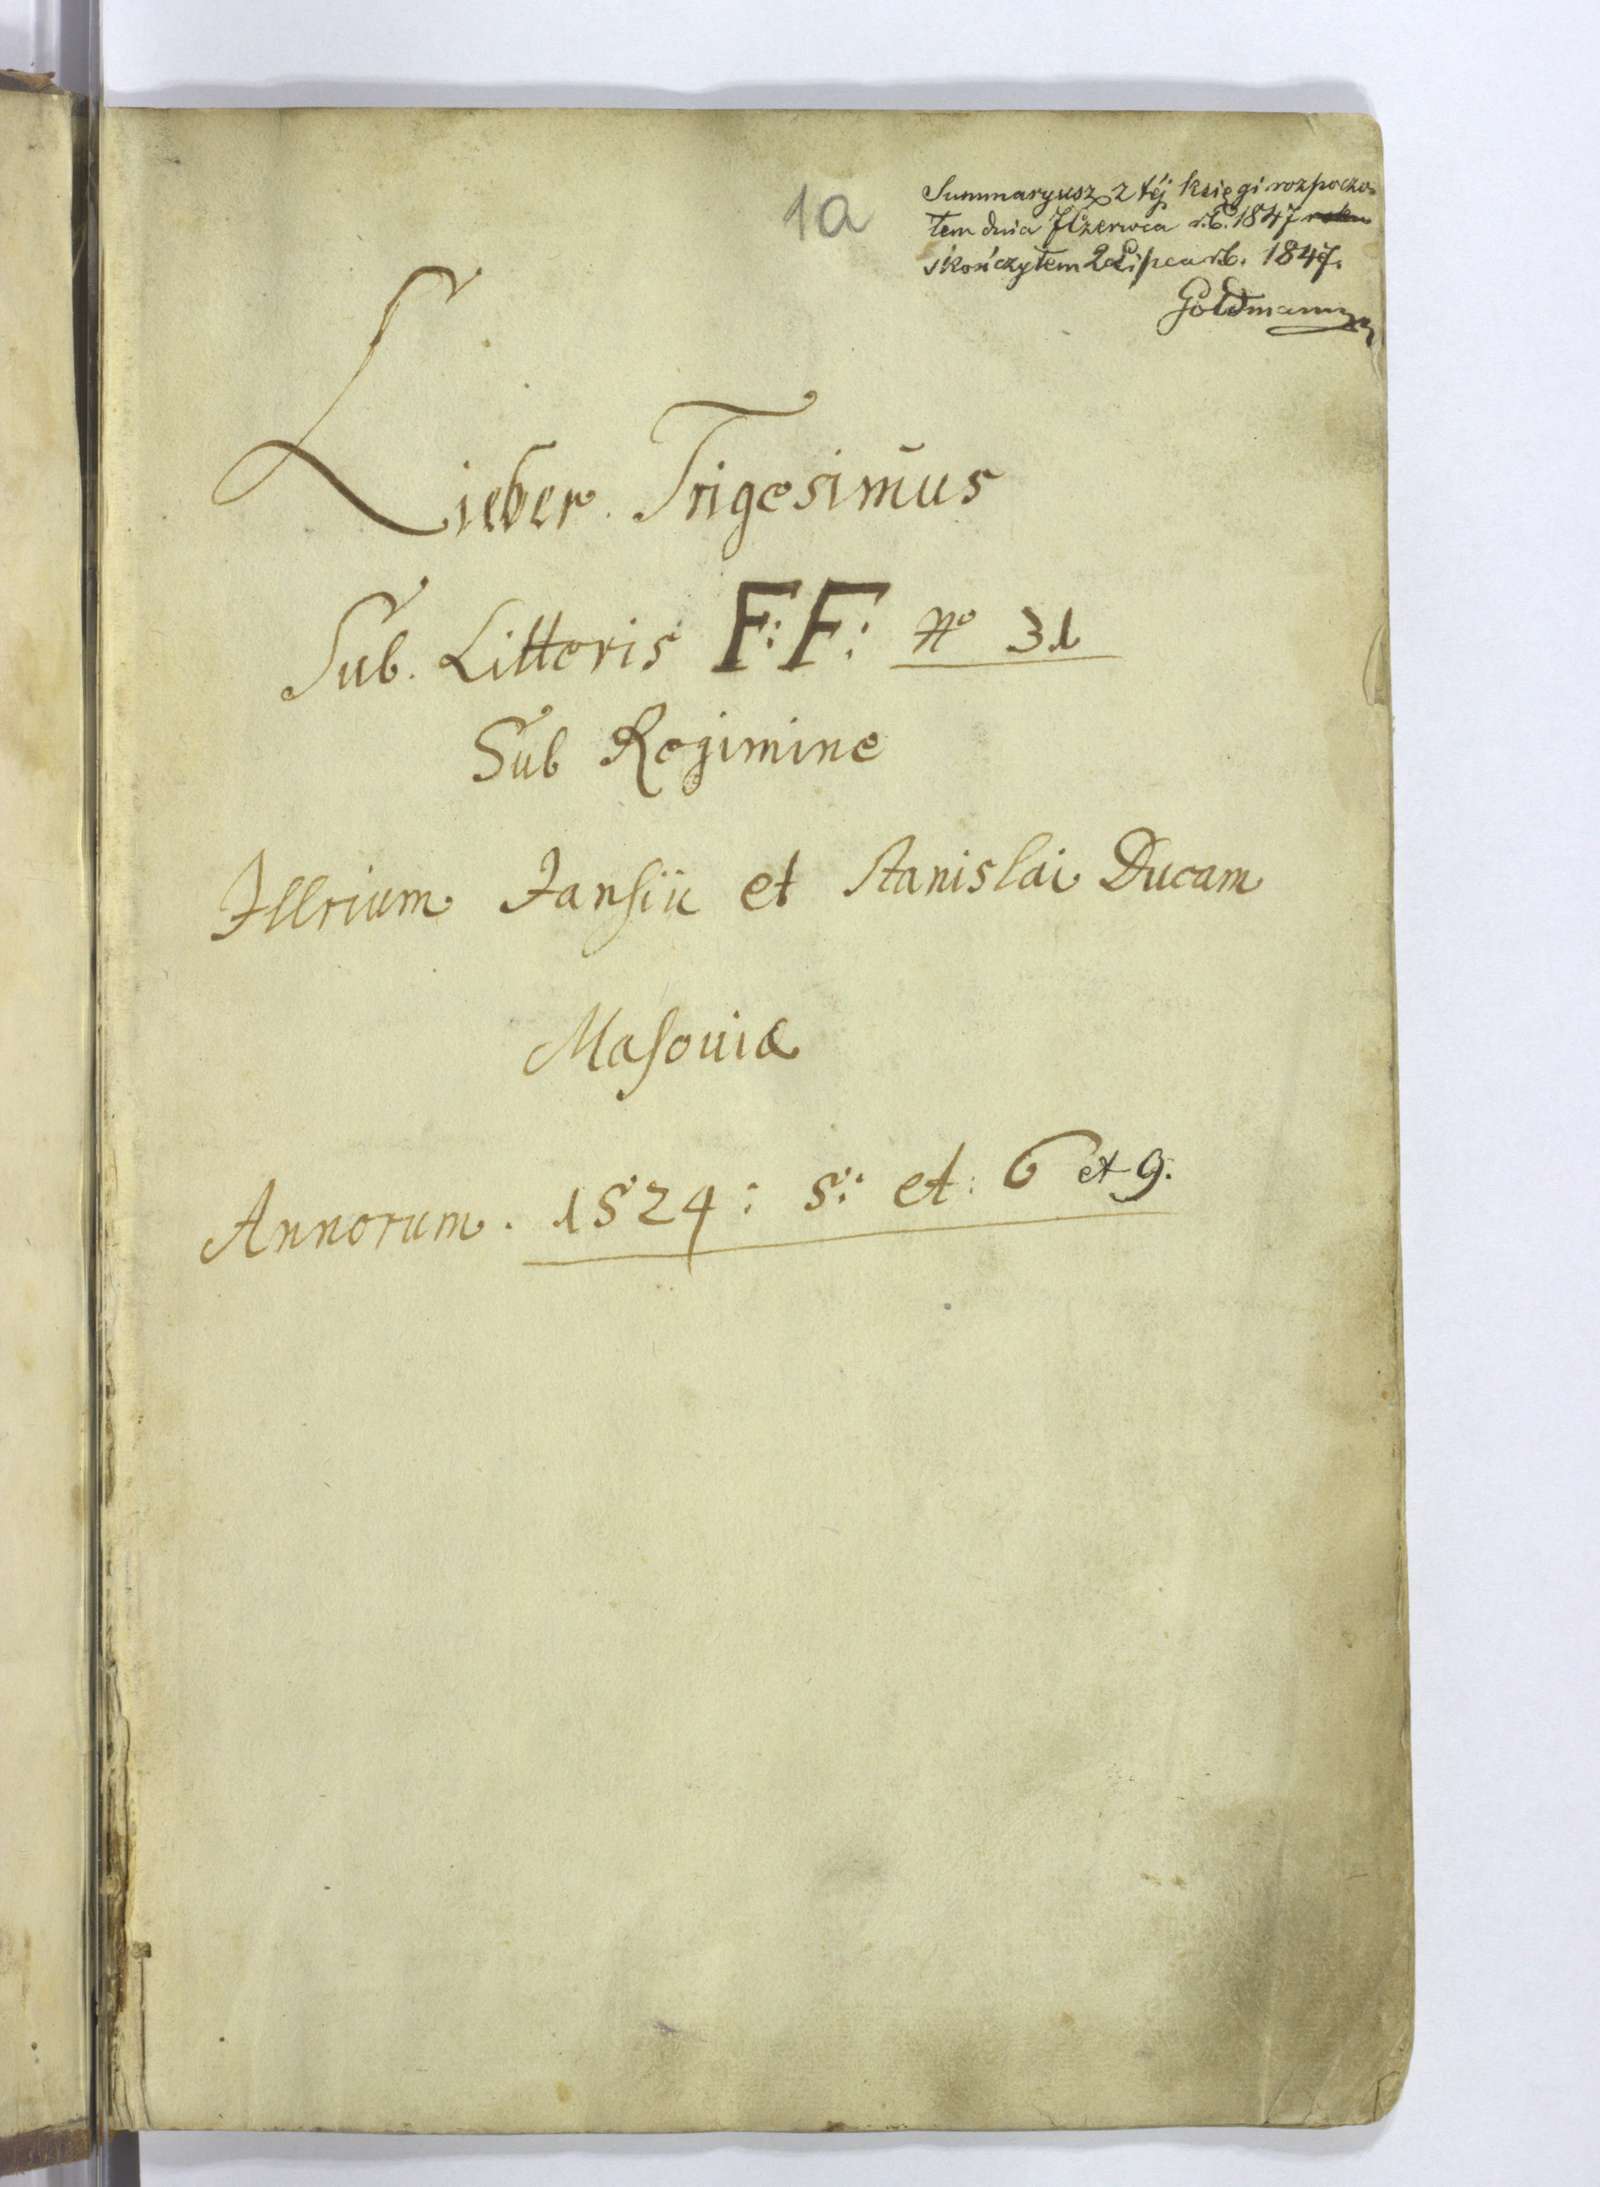 1a
Summaryusz z téj księgi rozpoczo-
łem dnia 7 Czerwca r.b. 1847 roku
skończyłem 2 Lipca r.b. 1847.
Goldmann
Lieber Trigesimus
Sub. Litteris F: F: No 31
Sub Regimine
Illrium Jansii et Stanislai Ducam
Masoviæ
Annorum. 1524: 5: et: 6 et 9.